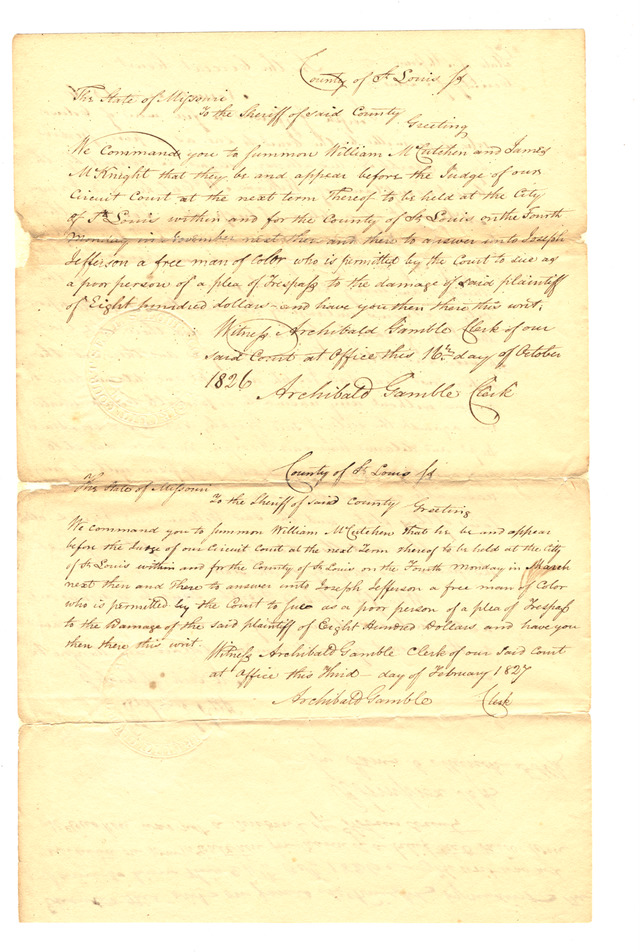 County of St Louis ss
The State of Missouri
To the Sheriff of said County
Greeting
We Command you to summon William McCutchen and James
McKnight that they be and appear before the Judge of our
Circuit Court at the next term thereof to be held at the City
of St Louis within and for the County of St Louis on the Fourth
Monday in November next then and there to answer unto Joseph
Jefferson a free man of Color who is permitted by the Court to sue as
a poor person of a plea of Trespass to the damage of said plaintiff
of Eight hundred dollars - and have you then there this writ.
Witness Archibald Gamble Clerk of our
said Court at Office this 16th day of October
1826 Archibald Gamble Clerk
County of St Louis ss
The State of Missouri
To the Sheriff of said County Greeting
We command you to summon William McCutchen that he be and appear
before the Judge of our Circuit Court at the next Term thereof to be held at the City
of St Louis within and for the County of St Louis on the Fourth Monday in March
next then and There to answer unto Joseph Jefferson a free man of Color
who is permitted by the Court to sue as a poor person of a plea of Trespass
to the Damage of the said plaintiff of Eight Hundred Dollars and have you
then there this writ.
Witness Archibald Gamble Clerk of our said Court
at Office this Third day of February 1827
Archibald Gamble Clerk